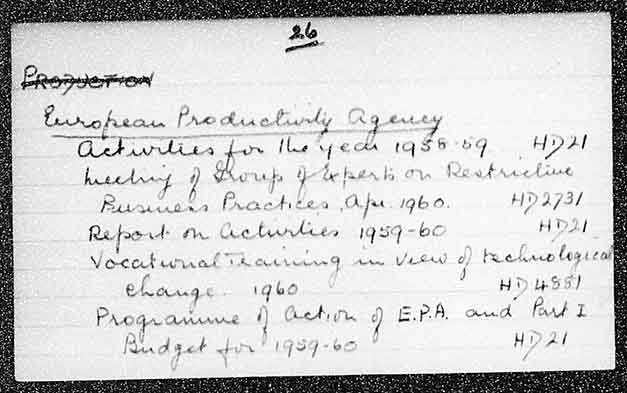 26
PRODUCTION
European Productivity Agency
Activities for the year 1958-59 HD21
Meeting of Group of Experts on Restrictive
Business Practices, Apr. 1960. HD2731
Report on Activities 1959-60 HD21
Vocational Training in view of technological
change. 1960 HD4881
Programme of action of E.P.A. and Part I
Budget for 1959-60 HD21